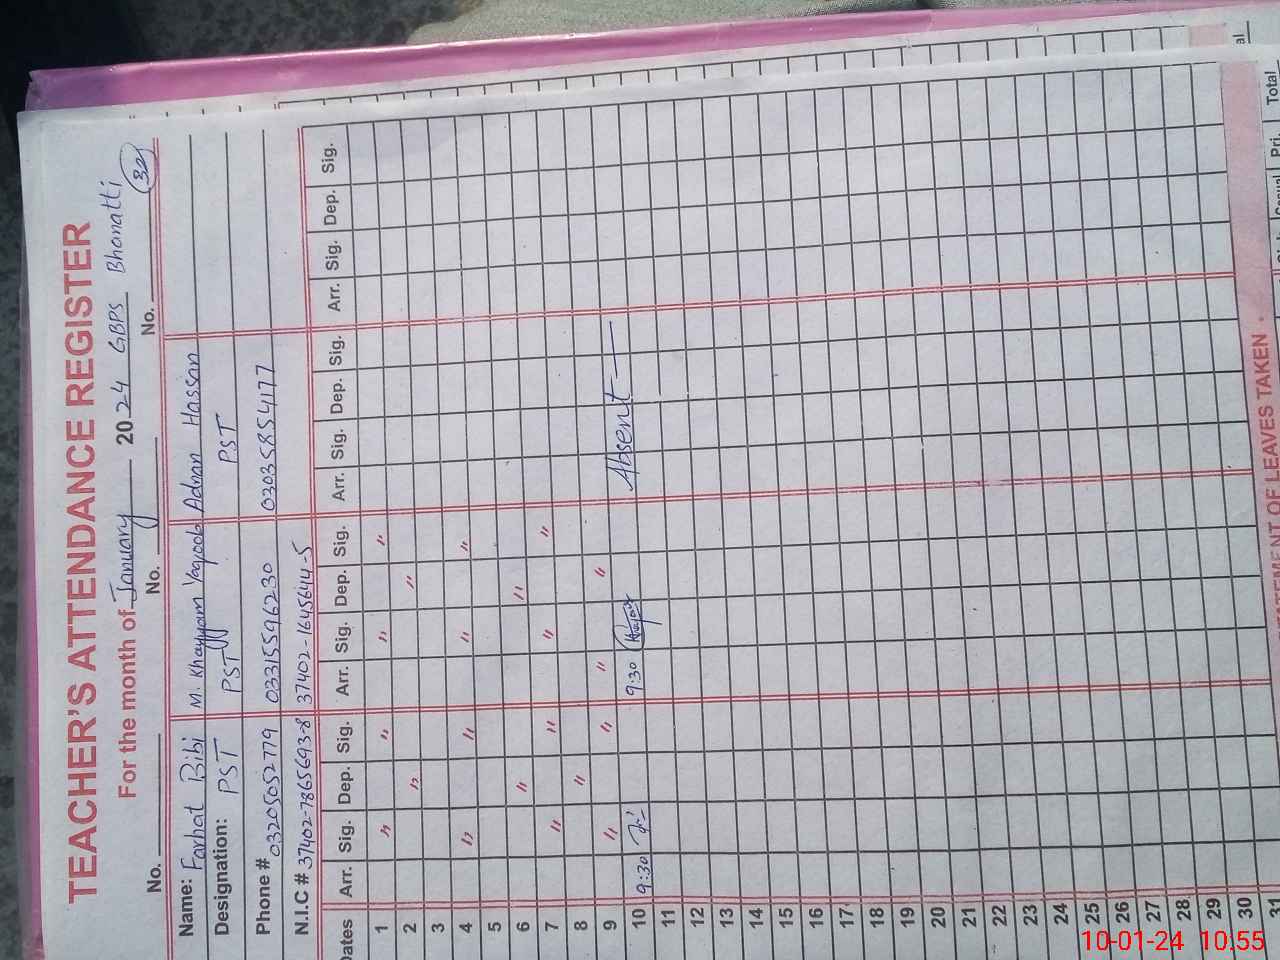 TEACHER'S ATTENDANCE REGISTER
For the month of January 2024 GBPS Bhanatti
No. No. No. 32
Name: Farhat Bibi M. Khayyam Yaqoob Adnan Hassan
Designation: PST PST PST
Phone # 03205052779 03315596230 03035854177
N.I.C # 37402-7865693-8 37402-1645644-5
Dates Arr. Sig. Dep. Sig. Arr. Sig. Dep. Sig. Arr. Sig. Dep. Sig. Arr. Sig. Dep. Sig.
1 " " " "
2 " "
3
4 " " " "
5
6 " "
7 " " " "
8 "
9 " " " "
10 9:30 9:30 Khayyam Absent
11
12
13
14
15
16
17
18
19
20
21
22
23
24
25
26
27
28
29
30
31
STATEMENT OF LEAVES TAKEN
Pri. Total
10-01-24 10:55